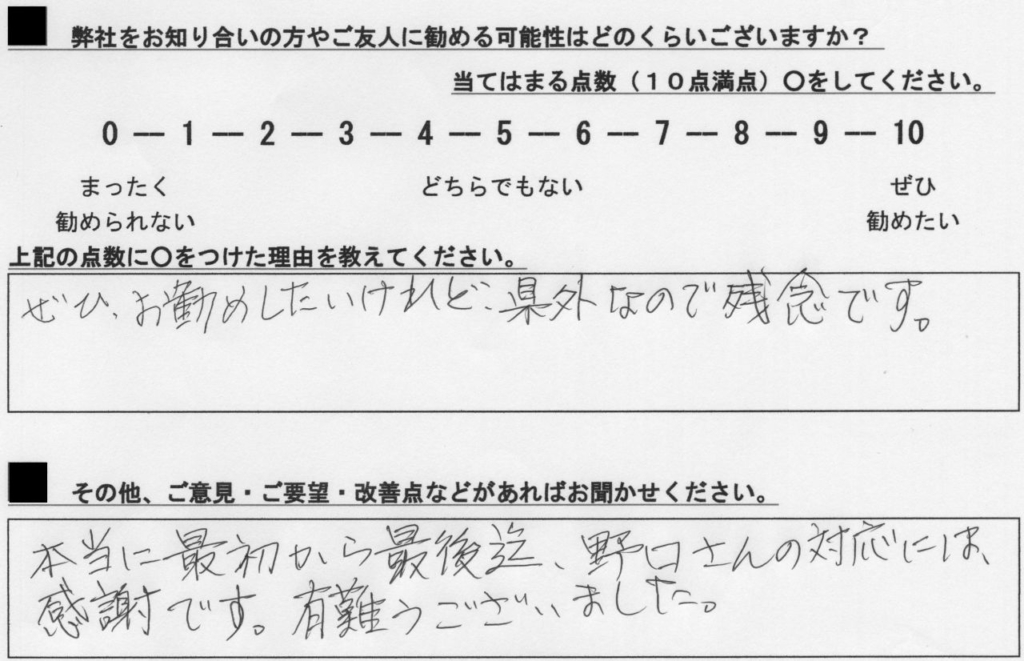 弊社をお知り合いの方やご友人に勧める可能性はどのくらいございますか？
当てはまる点数（１０点満点）〇をしてください。
0 ― 1 ― 2 ― 3 ― 4 ― 5 ― 6 ― 7 ― 8 ― 9 ― 10
まったく どちらでもない ぜひ
勧められない 勧めたい
上記の点数に〇をつけた理由を教えてください。
ぜひ、お勧めしたいけれど、県外なので残念です。
その他、ご意見・ご要望・改善点などがあればお聞かせください。
本当に最初から最後迄、野口さんの対応には、
感謝です。有難うございました。